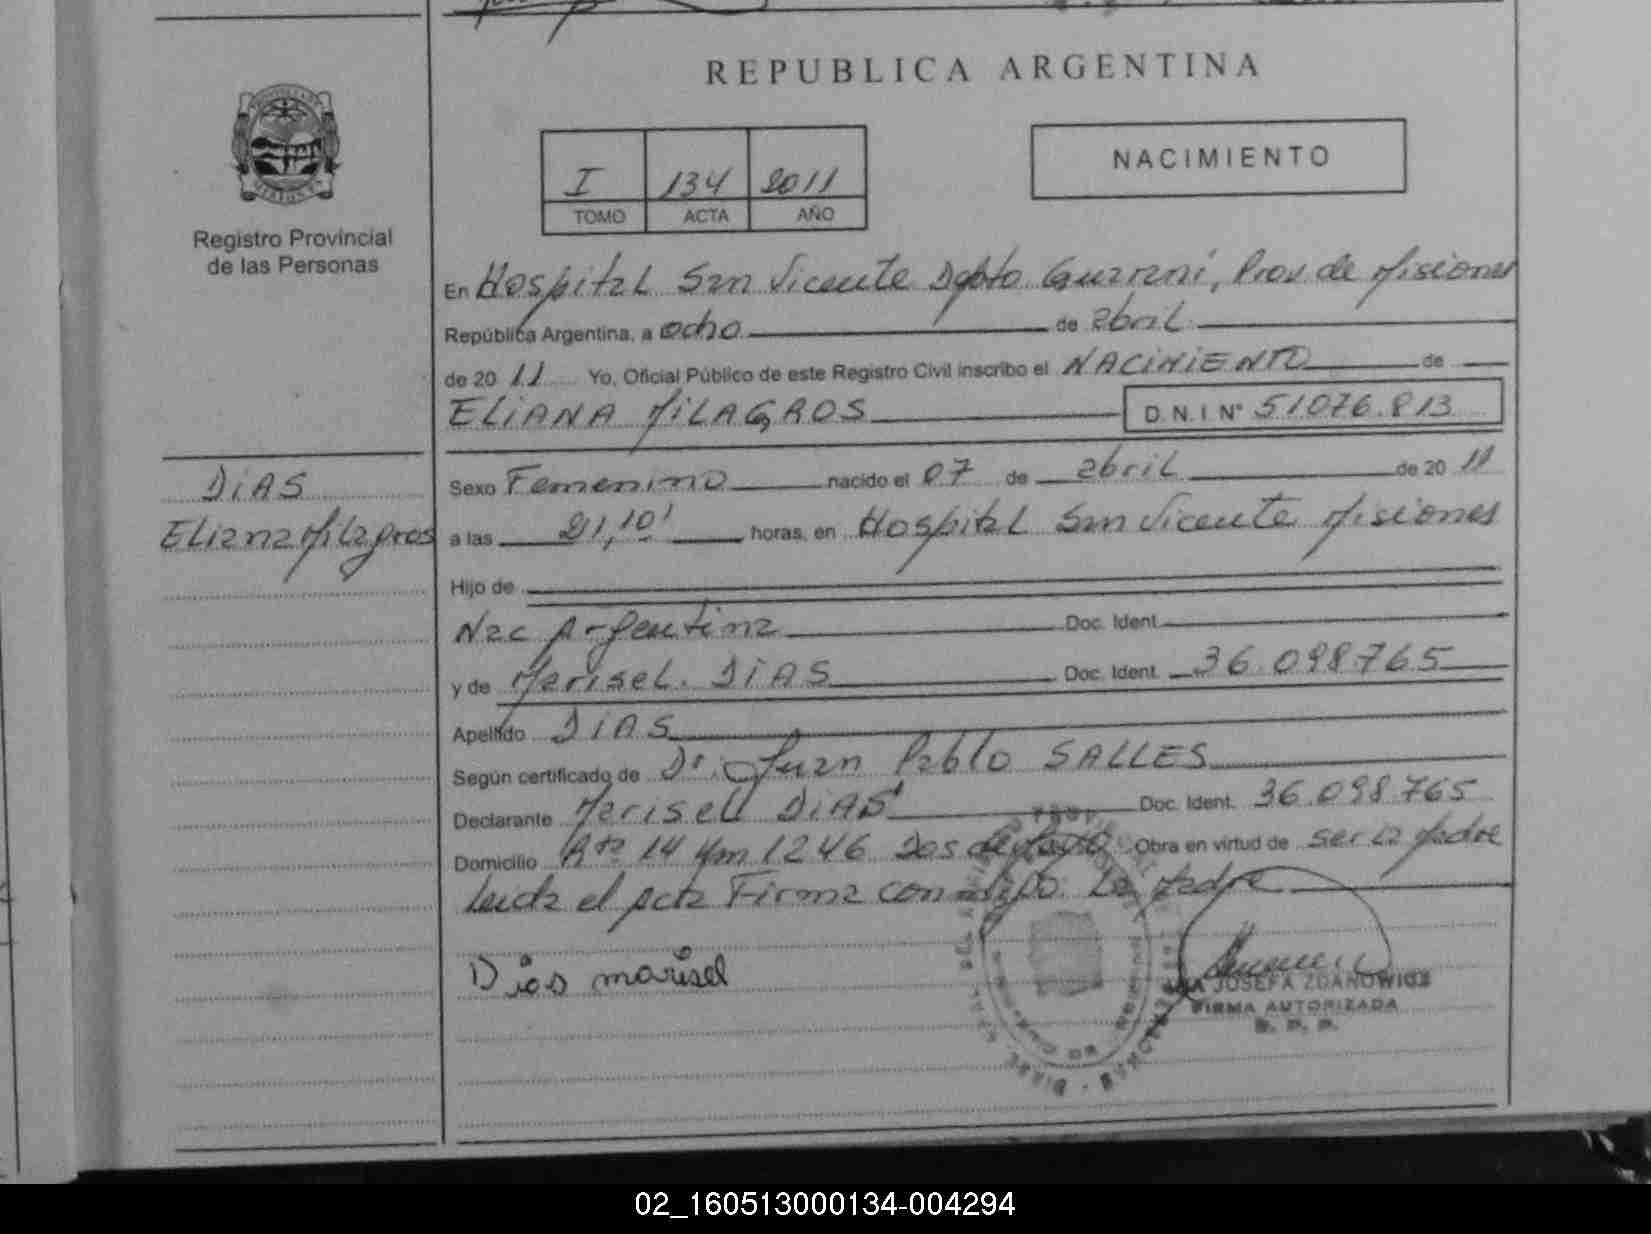 REPUBLICA ARGENTINA
I 134 2011
TOMO ACTA AÑO
NACIMIENTO
Registro Provincial
de las Personas
DiAS
Eliana Milagros
En Hospital San Vicente Dpto Guarani, Prov de Misiones
República Argentina, a ocho de abril.
de 20 11 Yo, Oficial Público de este Registro Civil inscribo el NACIMIENTO de
ELIANA MILAGROS D.N.I N° 51076.813
Sexo Femenino nacido el 07 de abril de 20 11
a las 21,10' horas, en Hospital San Vicente Misiones
Hijo de
Nac Argentina Doc. Ident.
y de Marisel. DIAS Doc. Ident. 36.098765
Apellido DIAS
Según certificado de Dr. Juan Pablo SALLES
Declarante Marisel DIAS Doc. Ident. 36.098.765
Domicilio Rta 14 Km 1246 Dos de Mayo Obra en virtud de ser la Madre
Leida el Acta Firma conmigo. La Madre
Dias marisel
JOSEFA ZDANOWICZ
FIRMA AUTORIZADA
02_160513000134-004294